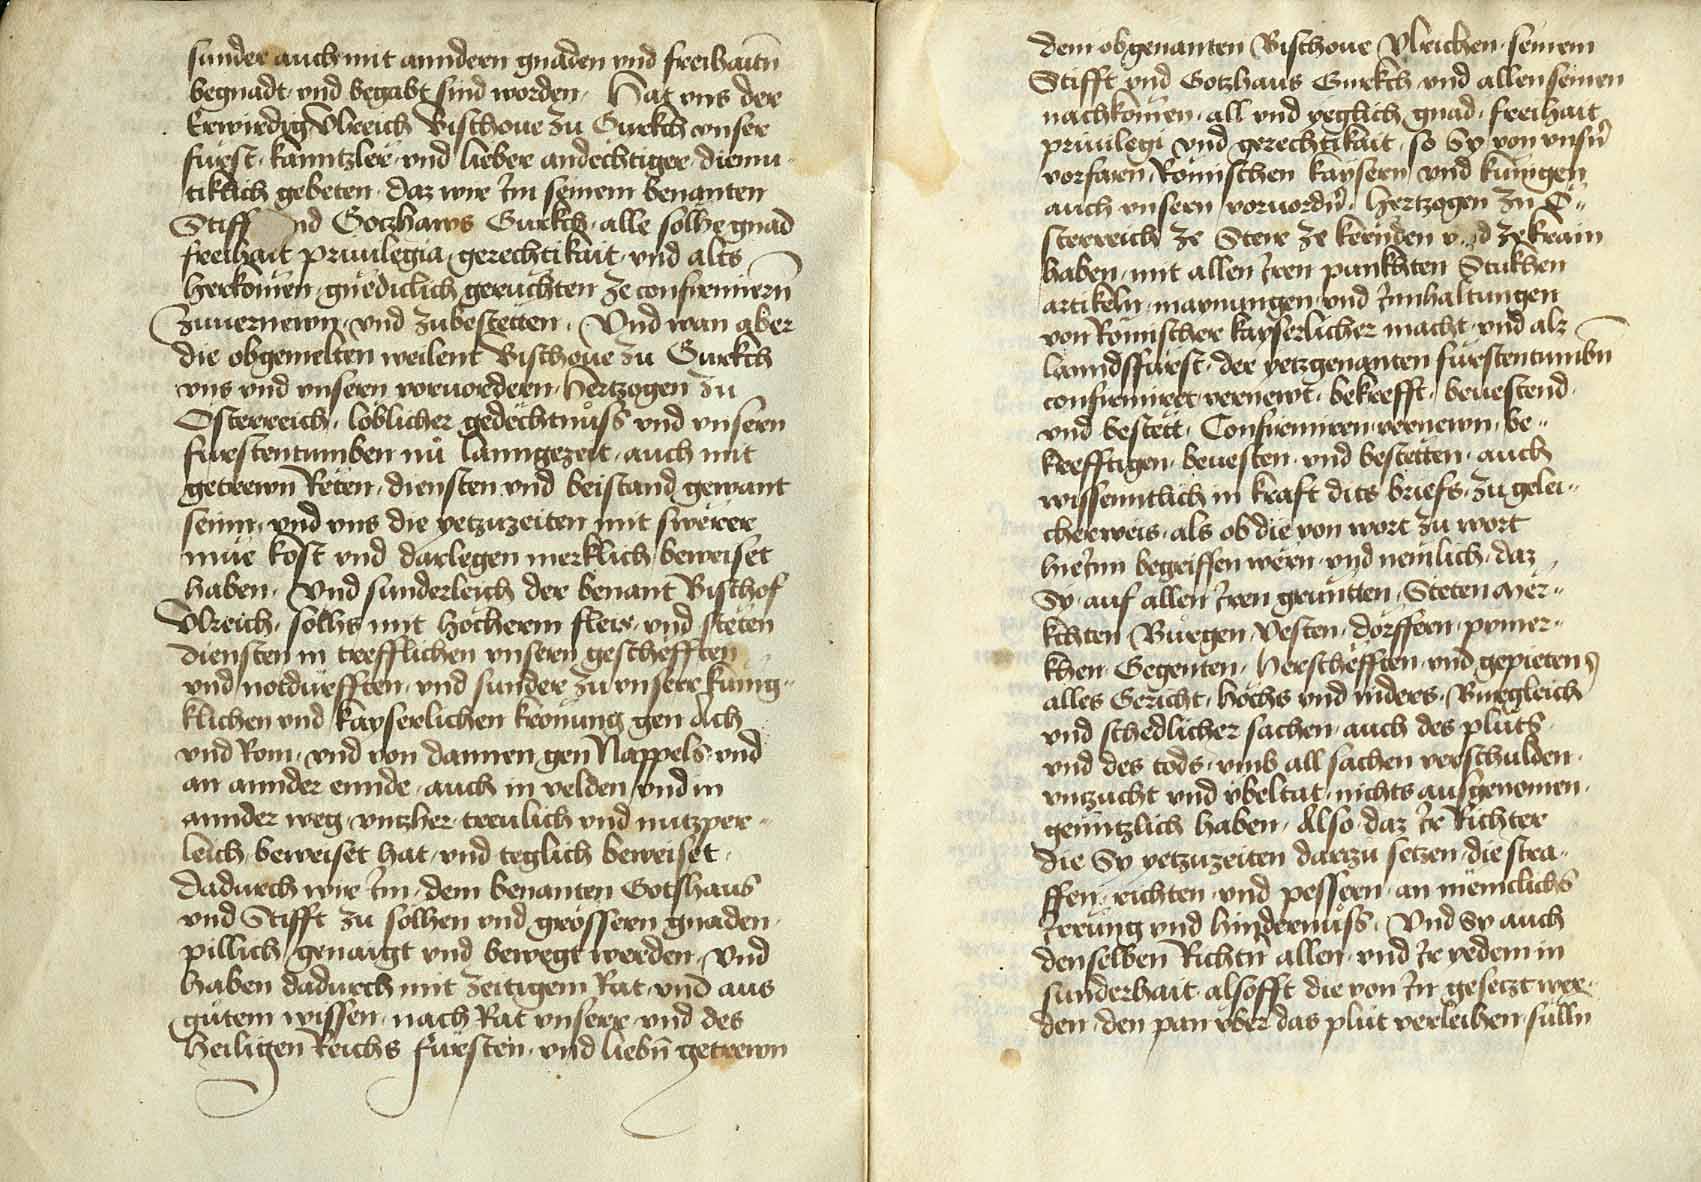 sunder auch mit anndern gnaden vnd freihaitñ
begnadt vnd begabt sind worden, Hat vns der
Erwirdig Vlreich Bischoue zu Gurkch vnser
fürst, kanntzler, vnd lieber andechtiger, diemu-
tiklich gebeten, daz wir Im seinem benanten
Stiff nd Gotzhaws Gurkch, alle solhe gnad
freihait priuilegia, gerechtikait, vnd alts
herkomen, gnediclich geruchten ze confirmiernn
zuuernewn, vnd zubestetten, Vnd wan aber
die obgemelten weilent Bischoue zu Gurkch
vns vnd vnsern voruordern, Hertzogen zu
Österreich, loblicher gedechtnüss vnd vnsern
fürstentumben nu lanngezeit, auch mit
getrewn Reten, diensten vnd beistand gewant
seinn, vnd vns die yetzuzeiten mit swerer
müe kost vnd darlegen merklich beweiset
haben, Vnd sunderleich der benant Bischof
Vlreich, solhs mit hocherm fleis, vnd steten
diensten in trefflichen vnsern geschefften
vnd notdurfften, vnd sunder zu vnserr kunig-
klichen vnd kayserlichen kronung gen Ach
vnd Rom, vnd von dannen gen Nappels, vnd
an annder ennde, auch in velden vnd in
annder weg, vntzher, treulich vnd nutzper-
leich, beweiset hat, vnd teglich beweiset,
dadurch wir Im, dem benanten Gotshaus
vnd Stifft zu solhen vnd grössern gnaden,
pillich, genaigt vnd bewegt werden, Vnd
haben dadurch mit zeitigem Rat, vnd aus
gutem wissen, nach Rat vnserr, vnd des
heiligen Reichs fürsten, vnd liebñ getrewn
dem obgenanten Bischoue Vlreichen, seinem
Stifft vnd Gotzhaus Gurkch vnd allen seinen
nachkomen, all vnd yeglich gnad, freihait
priuilegi vnd gerechtikait, so Sy von vnsern
vorfarn, Römischen kaysern vnd kunigen
auch vnsern voruordern, Hertzogen zu Ö-
sterreich ze Steir ze kernden vnd ze krain
haben, mit allen Iren punkhten Stukhen
artikeln, maynungen, vnd Innhaltungen
von Römischer kayserlicher macht, vnd als
lanndsfürst, der yetzgenanten fürstentumbñ
confirmiret, vernewt, bekrefft, beuestend
vnd bestett, Confirmiren, vernewn, be-
krefftigen, beuesten, vnd bestetten, auch
wissenntlich in kraft dits briefs, zu gelei-
cherweis, als ob die von wort zu wort
hierinn begriffen wern, vnd nemlich, daz
Sy, auf allen Iren gruntten, Steten Mer-
kchten Bürgen, Vesten, dörffern, pymer-
khen, Gegenten, Herschefften, vnd gepieten,
alles Gericht, hochs vnd niders, Burgleich
vnd schedlicher sachen, auch des pluts
vnd des tods, vmb all sachen verschulden,
vntzucht vnd vbeltat, nichts ausgenomen,
genntzlich haben, Also, daz Ir Richter
die Sy yetzuzeiten darzu setzen, die stra-
ffen, richten, vnd pessern, an menniclichs
Irrung vnd hindernüss, Vnd Sy auch
denselben Richtern allen, vnd Ir yedem in
sunderhait, alsofft die von In gesetzt wer-
den, den pan vber das plut verleihen, sulln